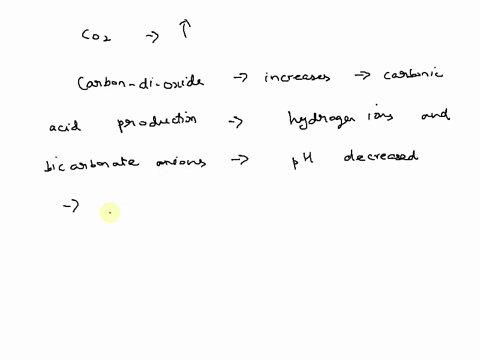 CO2 → ↑
Carbon-di-oxide → increases → carbonic
acid production → hydrogen ions and
bicarbonate anions → pH decreased
→